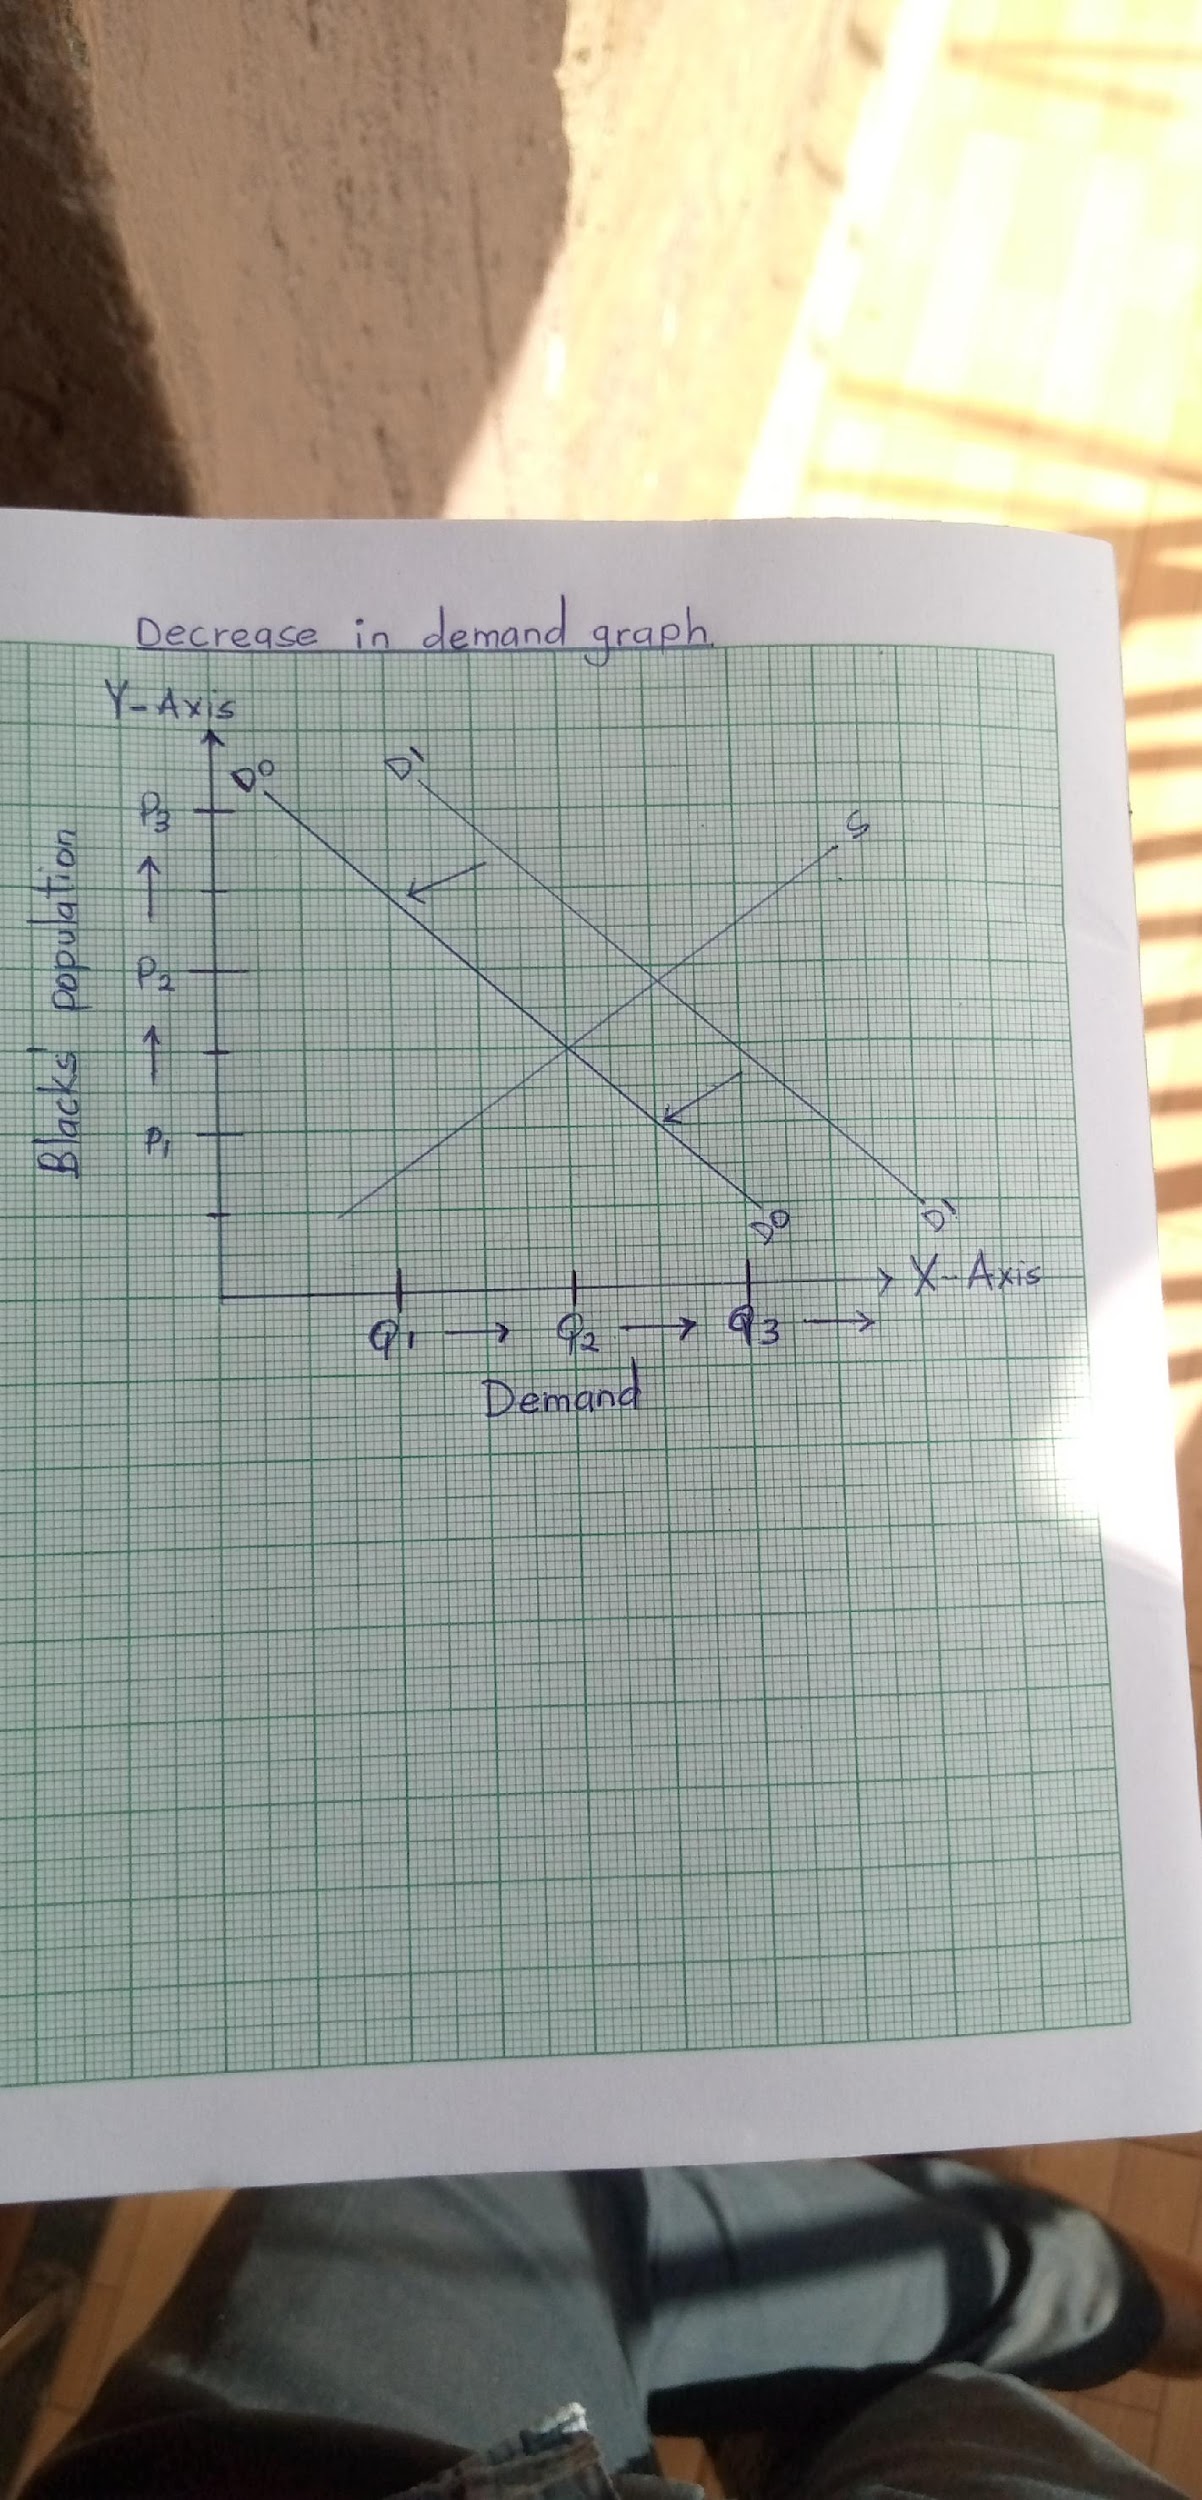 Decrease in demand graph.
Y-Axis
D⁰
D'
P3
S
Blacks' population
P2
P1
D⁰
D'
X-Axis
Q1
Q2
Q3
Demand